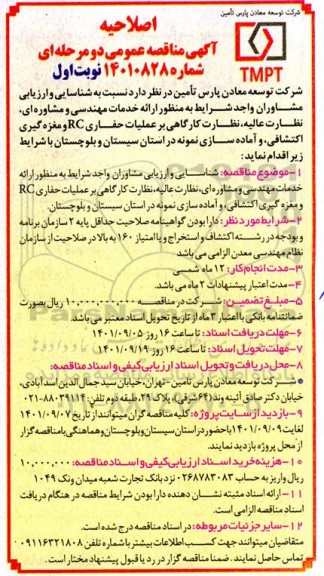 شرکت توسعه معادن پارس تأمین
TMPT
اصلاحیه
آگهی مناقصه عمومی دو مرحله ای
شماره ۱۴۰۱۰۸۲۸ نوبت اول
شرکت توسعه معادن پارس تأمین در نظر دارد نسبت به شناسایی و ارزیابی
مشاوران واجد شرایط به منظور ارائه خدمات مهندسی و مشاوره ای،
نظارت عالیه، نظارت کارگاهی بر عملیات حفاری RC و مغزه گیری
اکتشافی، و آماده سازی نمونه در استان سیستان و بلوچستان با شرایط
زیر اقدام نماید:
۱-موضوع مناقصه: شناسایی و ارزیابی مشاوران واجد شرایط به منظور ارائه
خدمات مهندسی و مشاوره ای، نظارت عالیه، نظارت کارگاهی بر عملیات حفاری RC
و مغزه گیری اکتشافی، و آماده سازی نمونه در استان سیستان و بلوچستان.
۲-شرایط مورد نظر: دارا بودن گواهینامه صلاحیت حداقل پایه ۲ سازمان برنامه
و بودجه در رشته اکتشاف و استخراج و یا امتیاز ۱۶۰ به بالا در صلاحیت از سازمان
نظام مهندسی معدن الزامی می باشد
۳-مدت انجام کار: ۱۲ ماه شمسی
۴-مدت اعتبار پیشنهادات ۲ ماه می باشد.
۵-مبلغ تضمین: شرکت در مناقصه ۱۰,۰۰۰,۰۰۰,۰۰۰ ریال بصورت
ضمانتنامه بانکی با اعتبار ۳ ماه از تاریخ تحویل اسناد معتبر می باشد.
۶-مهلت دریافت اسناد: تا ساعت ۱۶ روز ۱۴۰۱/۰۹/۰۵
۷-مهلت تحویل اسناد: تا ساعت ۱۶ روز ۱۴۰۱/۰۹/۱۹
۸-محل دریافت و تحویل اسناد ارزیابی کیفی و اسناد مناقصه:
شرکت توسعه معادن پارس تامین - تهران، خیابان سید جمال الدین اسدآبادی،
خیابان دکتر صادق آئینه وند (۶۴ شرقی)، پلاک ۱۹، طبقه دوم تلفن:
۹-بازدید از سایت پروژه: کلیه مناقصه گران میتوانند از تاریخ ۱۴۰۱/۰۹/۰۷
لغایت ۱۴۰۱/۰۹/۰۹ با حضور در استان سیستان و بلوچستان و هماهنگی با مناقصه گزار
از محل پروژه بازدید نمایند.
۱۰-هزینه خرید اسناد ارزیابی کیفی و اسناد مناقصه: ۱۰,۰۰۰,۰۰۰
ریال واریز به حساب ۰۲۶۸۷۸۳۰۸۳ نزد بانک تجارت شعبه میدان ونک ۱۰۴۹
۱۱-ارائه اسناد مثبته نشان دهنده دارا بودن شرایط مناقصه در هنگام دریافت
اسناد مناقصه الزامی است.
۱۲-سایر جزئیات مربوطه: در اسناد مناقصه درج شده است.
متقاضیان میتوانند جهت کسب اطلاعات بیشتر با شماره تلفن ۰۹۱۱۶۳۲۱۸۰۸
تماس حاصل نمایند. ضمنا مناقصه گزار در رد یا قبول پیشنهاد مختار است.